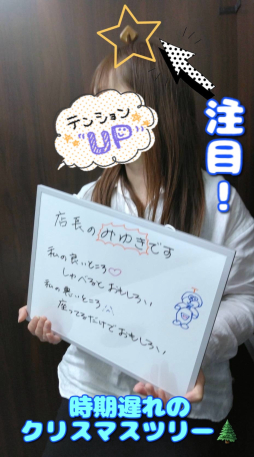 テンション
"UP"
注目!
店長のみゆきです
私の良いところ♡
しゃべるとおもしろい
私の悪いところ
座ってるだけでおもしろい
時期遅れの
クリスマスツリー🎄